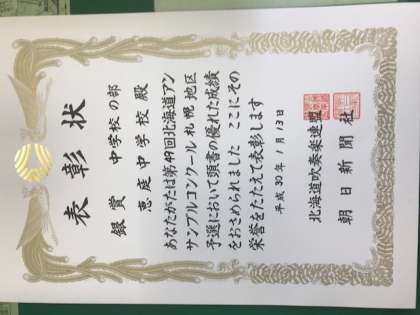 表彰状
銀賞 中学校の部
恵庭中学校殿
あなたがたは第49回北海道アン
サンブルコンクール札幌地区
予選において頭書の優れた成績
をおさめられました ここにその
栄誉をたたえて表彰します
平成30年1月13日
北海道吹奏楽連盟
朝日新聞社